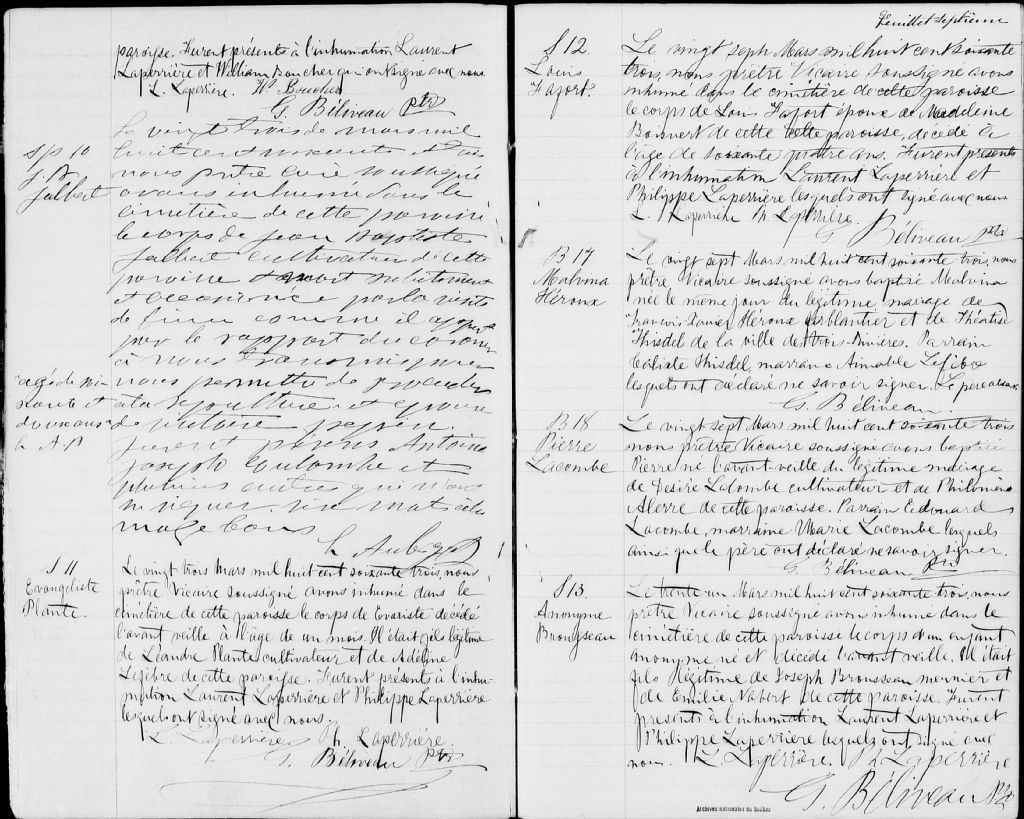 paroisse. Furent présents à l'inhumation Laurent
Laperrière et William Boucher qui ont signé avec nous
L. Laperrière. W. Boucher
G. Béliveau ptr
S/p 10
J. B.
Jalbert
Le vingt trois de mars mil
huit cent soixante et trois
nous prêtre curé soussigné
avons inhumé dans le
cimetière de cette paroisse
le corps de Jean Baptiste
Jalbert cultivateur de cette
paroisse
et par la visite
de Dieu comme il appert
par le rapport du coroner
à nous
nous permettre de procéder
à la sépulture et époux
de Victoire
agé de
soixante et
douze ans
L. A. P.
furent présens Antoine
Joseph Coulombe et
plusieurs autres qui n'ont
su signer. six mots à la
marge bons
L. Aubry
S 11
Evangéliste
Plante.
Le vingt trois Mars mil huit cent soixante trois, nous
prêtre Vicaire soussigné avons inhumé dans le
cimétière de cette paroisse le corps de Evariste décédé
l'avant veille à l'âge de un mois. Il était fils légitime
de Léandre Plante cultivateur et de Adeline
Lefebre de cette paroisse. Furent présents à l'inhu-
mation Laurent Laperrière et Philippe Laperrière
lesquels ont signé avec nous.
L. Laperrière Ph. Laperrière.
G. Béliveau ptr
Feuillet septième
S 12.
Louis
Fafort.
Le vingt sept Mars mil huit cent soixante
trois, nous prêtre Vicaire soussigné avons
inhumé dans le cimétière de cette paroisse
le corps de Louis Fafort époux de Madeleine
Boisvert de cette paroisse, décédé à
l'âge de soixante quatre ans. Furent présents
à l'inhumation Laurent Laperrière et
Philippe Laperrière lesquels ont signé avec nous
L. Laperrière Ph Laperrière.
G. Béliveau ptr
B 17
Malvina
Héroux
Le vingt sept Mars mil huit cent soixante trois, nous
prêtre Vicaire soussigné avons baptisé Malvina
née le même jour du légitime mariage de
François Xavier Héroux ferblantier et de Théatise
Thisdel de la ville des Trois-Rivières. Parrain
Calixte Thisdel, marraine Aimable Lefebvre
lesquels ont déclaré ne savoir signer. Le père absent
G. Béliveau.
B 18
Pierre
Lacombe
Le vingt sept Mars mil huit cent soixante trois
nous prêtre Vicaire soussigné avons baptisé
Pierre né l'avant-veille du légitime mariage
de Desiré Lacombe cultivateur et de Philomène
Alerre de cette paroisse. Parrain Edouard
Lacombe, marraine Marie Lacombe lesquels
ainsi que le père ont déclaré ne savoir signer.
G. Béliveau ptr
S 13.
Anonyme
Brousseau
Le trente un Mars mil huit cent soixante trois, nous
prêtre Vicaire soussigné avons inhumé dans le
cimétière de cette paroisse le corps d'un enfant
anonyme né et décédé l'avant veille. Il était
fils légitime de Joseph Brousseau meunier et
de Emilie Nabert de cette paroisse. Furent
présents à l'inhumation Laurent Laperrière et
Philippe Laperrière lesquels ont signé avec
nous. L. Laperrière. Ph Laperrière
G. Béliveau Ptr
Archives nationales du Québec